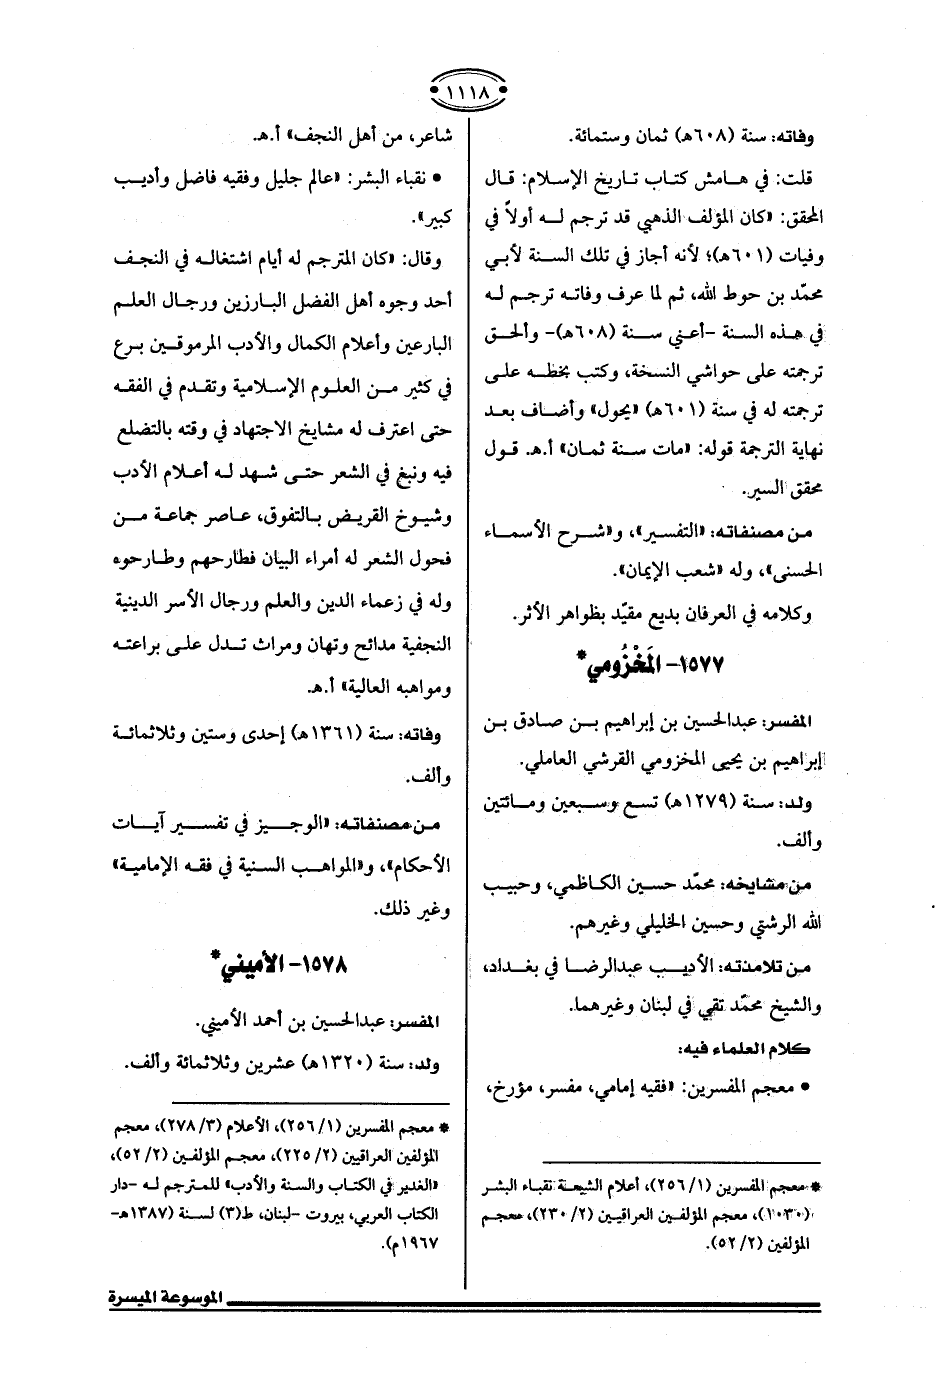 ١١١٨
وفاته: سنة (٦٠٨هـ) ثمان وستمائة.
قلت: في هامش كتاب تاريخ الإسلام: قال
المحقق: «كان المؤلف الذهبي قد ترجم له أولاً في
وفيات (٦٠١هـ)؛ لأنه أجاز في تلك السنة لأبي
محمّد بن حوط الله، ثم لما عرف وفاته ترجم له
في هذه السنة -أعني سنة (٦٠٨هـ)- وألحق
ترجمته على حواشي النسخة، وكتب بخطه على
ترجمته له في سنة (٦٠١هـ) «يحول» وأضاف بعد
نهاية الترجمة قوله: «مات سنة ثمان» أ.هـ. قول
محقق السير.
من مصنفاته: «التفسير»، و«شرح الأسماء
الحسنى»، وله «شعب الإيمان».
وكلامه في العرفان بديع مقيّد بظواهر الأثر.
١٥٧٧- المَخْزُومي*
المفسر: عبدالحسين بن إبراهيم بن صادق بن
إبراهيم بن يحيى المخزومي القرشي العاملي.
ولد: سنة (١٢٧٩هـ) تسع وسبعين ومائتين
وألف.
من مشايخه: محمّد حسين الكاظمي، وحبيب
الله الرشتي وحسين الخليلي وغيرهم.
من تلامذته: الأديب عبدالرضا في بغداد،
والشيخ محمّد تقي في لبنان وغيرهما.
كلام العلماء فيه:
• معجم المفسرين: «فقيه إمامي، مفسر، مؤرخ،
* معجم المفسرين (١/ ٢٥٦)، أعلام الشيعة نقباء البشر
(١٠٣٠)، معجم المؤلفين العراقيين (٢/ ٢٣٠)، معجم
المؤلفين (٢/ ٥٢).
شاعر، من أهل النجف» أ.هـ.
• نقباء البشر: «عالم جليل وفقيه فاضل وأديب
كبير».
وقال: «كان المترجم له أيام اشتغاله في النجف
أحد وجوه أهل الفضل البارزين ورجال العلم
البارعين وأعلام الكمال والأدب المرموقين برع
في كثير من العلوم الإسلامية وتقدم في الفقه
حتى اعترف له مشايخ الاجتهاد في وقته بالتضلع
فيه ونبغ في الشعر حتى شهد له أعلام الأدب
وشيوخ القريض بالتفوق، عاصر جماعة من
فحول الشعر له أمراء البيان فطارحهم وطارحوه
وله في زعماء الدين والعلم ورجال الأسر الدينية
النجفية مدائح وتهان ومراث تدل على براعته
ومواهبه العالية» أ.هـ.
وفاته: سنة (١٣٦١هـ) إحدى وستين وثلاثمائة
وألف.
من مصنفاته: «الوجيز في تفسير آيات
الأحكام»، و«المواهب السنية في فقه الإمامية»
وغير ذلك.
١٥٧٨- الأميني*
المفسر: عبدالحسين بن أحمد الأميني.
ولد: سنة (١٣٢٠هـ) عشرين وثلاثمائة وألف.
* معجم المفسرين (١/ ٢٥٦)، الأعلام (٣/ ٢٧٨)، معجم
المؤلفين العراقيين (٢/ ٢٢٥)، معجم المؤلفين (٢/ ٥٢)،
«الغدير في الكتاب والسنة والأدب» للمترجم له -دار
الكتاب العربي، بيروت -لبنان، ط(٣) لسنة (١٣٨٧هـ-
١٩٦٧م).
الموسوعة الميسرة